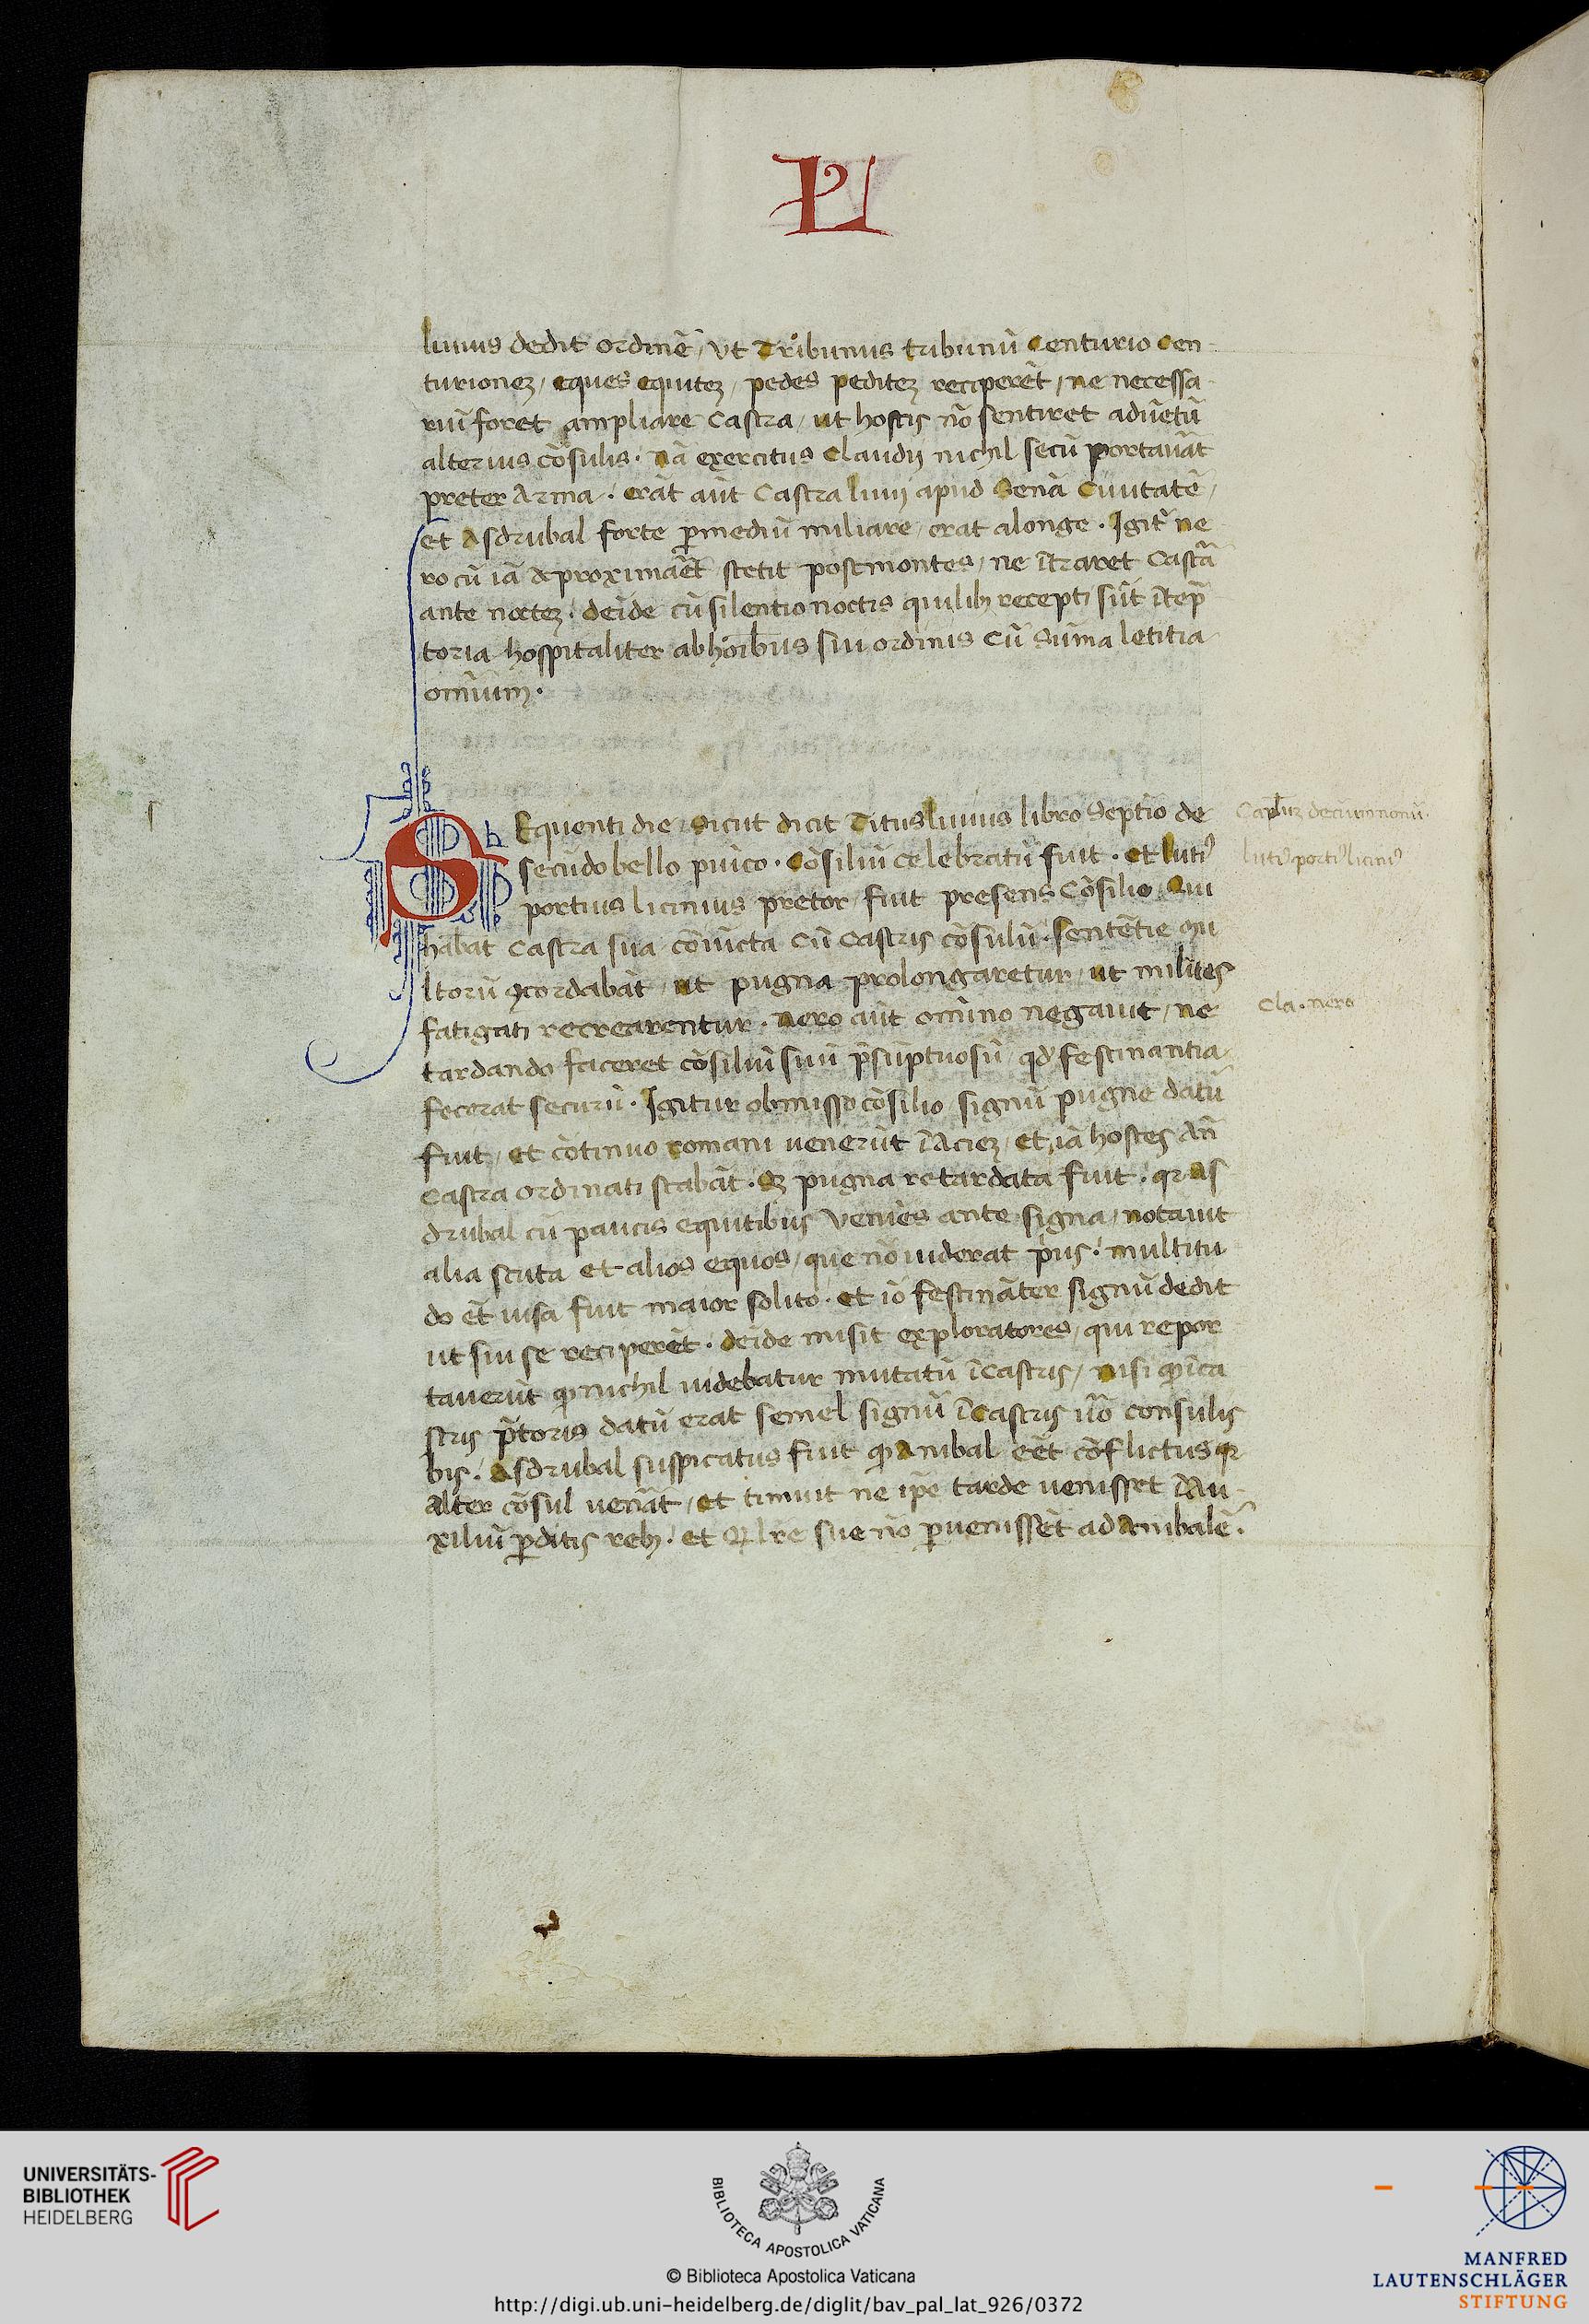 LI
liuius dedit ordinē / ut Tribunus tribunū Centurio Cen-
turionez / eques equitez / pedes peditez reciperēt / ne necessa-
riū foret ampliare Castra / ut hostis nō sentiret aduētū
alterius cōsulis · nā exercitus Claudij nichil secū portauāt
preter Arma · erāt aūt Castra liuij apud Senā Ciuitatē /
et Asdrubal forte ꝑmediū miliare / erat alonge · Igitr̄ ne
ro cū iā aproximāēt stetit postmontes / ne ītraret Castrā
ante noctez · deīde cū silentio noctis quilibꝫ recepti sūt ītēp̄
toria hospitaliter ab hoībus sui ordinis cū sūma letitia
omīum ·
SEquenti die / Sicut dicit Titusliuius libro Septīo de
secūdo bello pūico · Cōsiliū celebratū fuit · et lutiꝰ
portius licinius pretor / fuit presens Cōsilio · Qui
habāt Castra sua cōiūcta cū Castris cōsulū · Sentētie mu
ltorū ꝯcordabāt / ut pugna prolongaretur / ut milites
fatigati recrearentur · Nero aūt omīno negauit / ne
tardando faceret cōsiliū suū p̄sūptuosū / qd' festinantia
fecerat securū · Igitur obmisso cōsilio / signū pugne datū
fuit / et cōtinuo romani uenerūt īAciez / et iā hostes An̄
Castra ordinati stabāt · Sꝫ pugna retardata fuit · qꝛ As
drubal cū paucis equitibus ueniēs ante signa / notauit
alia scuta et alios equos / que nō uiderat p̄us · multitu
do ēt uisa fuit maior solito · et iō festināter signū dedit
ut sui se reciperēt · deīde misit exploratores / qui repor
tauerūt ꝙ nichil uidebatur mutatū īCastris / nisi ꝙ īca
stris p̄toris datū erat semel signū īCastris u̅o consulis
bis · Asdrubal suspicatus fuit ꝙ Anibal eēt cōflictus qꝛ
alter cōsul uenāt / et timuit ne ip̄e tarde uenisset īAu-
xiliū ꝑditis rebꝫ · et ꝙ lr̄e sue nō ꝑuenissēt ad Anibalē ·
Capl'uz decimnonū·
lutiꝰ portiꝰ liciniꝰ
Cla. nero
UNIVERSITÄTS-
BIBLIOTHEK
HEIDELBERG
BIBLIOTECA APOSTOLICA VATICANA
© Biblioteca Apostolica Vaticana
http://digi.ub.uni-heidelberg.de/diglit/bav_pal_lat_926/0372
MANFRED
LAUTENSCHLÄGER
STIFTUNG